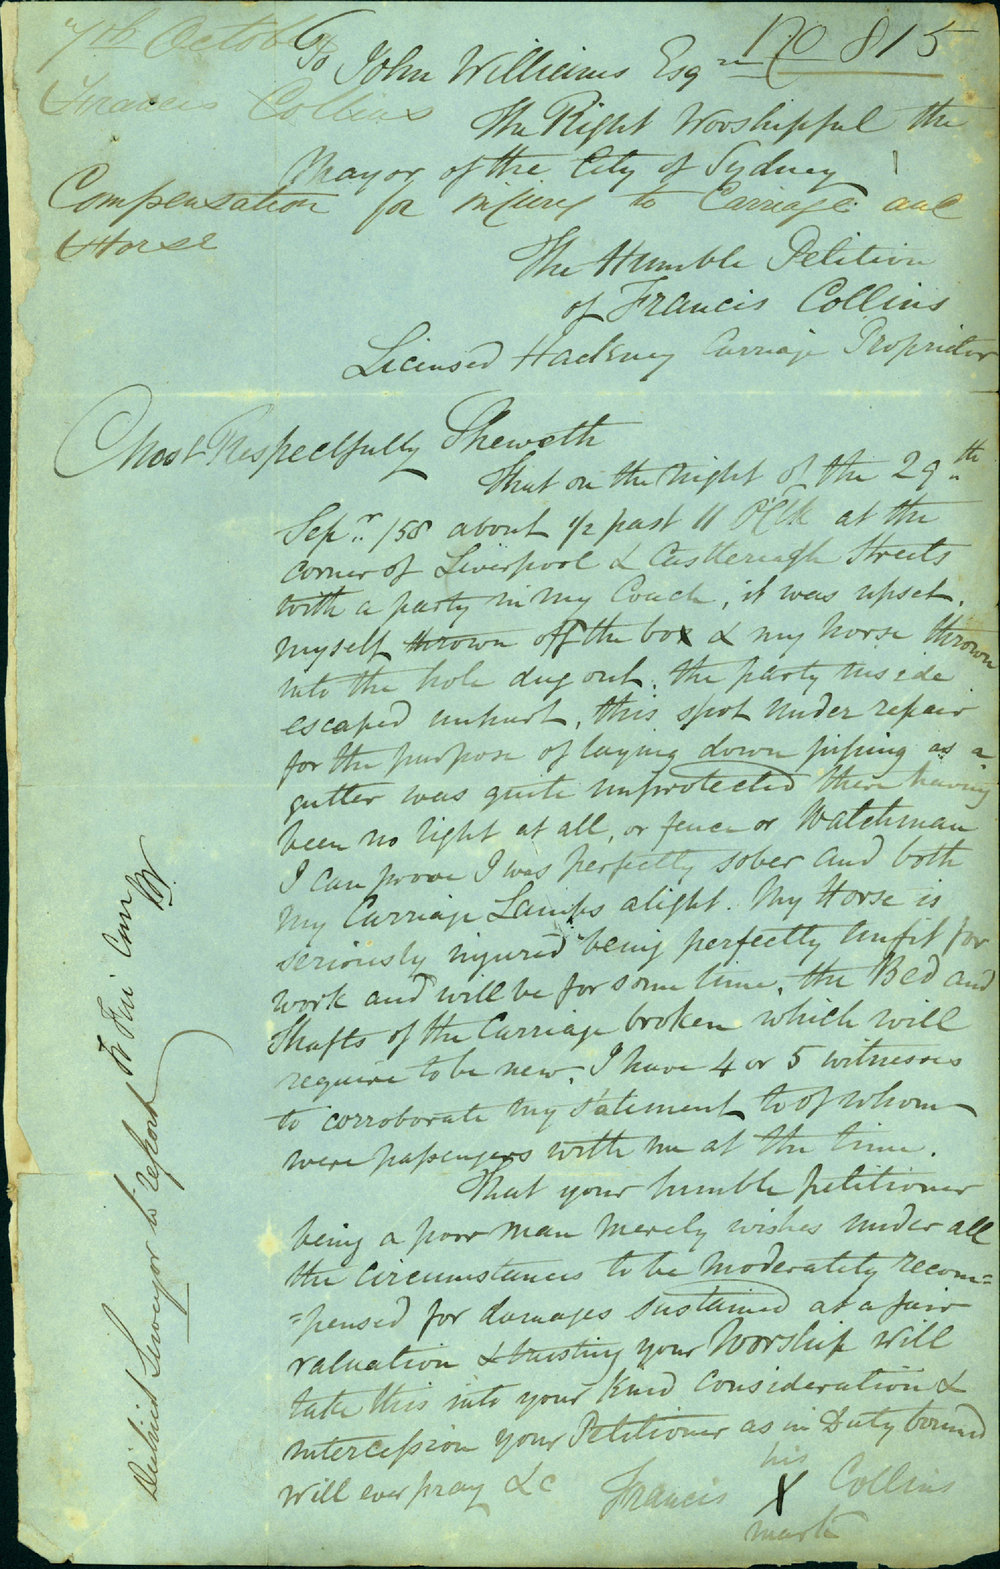 No 815
7th October
Francis Collins
Compensation for injury to Carriage and
Horse
To John Williams Esqre
The Right Worshipful the
Mayor of the City of Sydney
The Humble Petition
of Francis Collins
Licensed Hackney Carriage Proprietor
Most Respectfully Sheweth
That on the night of the 29th
Sepr /58 about 1/2 past 11 O'Clk at the
corner of Liverpool & Castlereagh Streets
with a party in my Coach, it was upset,
myself thrown off the box & my horse thrown
into the hole dug out. the party inside
escaped unhurt, this spot under repair
for the purpose of laying down piping as a
gutter was quite unprotected there having
been no light at all, or fence or Watchman
I can prove I was perfectly sober and both
my Carriage Lamps alight. My Horse is
seriously injured being perfectly unfit for
work and will be for some time, the Bed and
Shafts of the Carriage broken which will
require to be new. I have 4 or 5 witnesses
to corroborate my statement to of whom
were passengers with me at the time.
That your humble petitioner
being a poor man merely wishes under all
the circumstances to be moderately recom=
=pensed for damages sustained at a fair
valuation & trusting your Worship will
take this into your kind consideration &
intercession your Petitioner as in Duty bound
will ever pray &c
Francis his X mark Collins
Surveyor to report